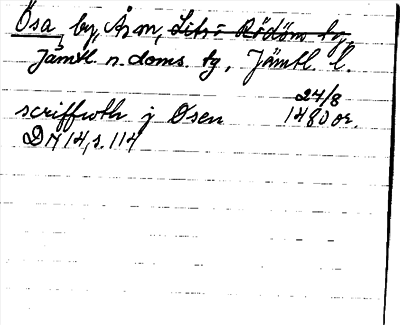 Ösa, by, Ås sn, Lits o Rödöns tg,
Jämtl. n. doms. tg, Jämtl. l.
24/8
scriffwoth j Øsen 1480 or.
DN 14, s. 114